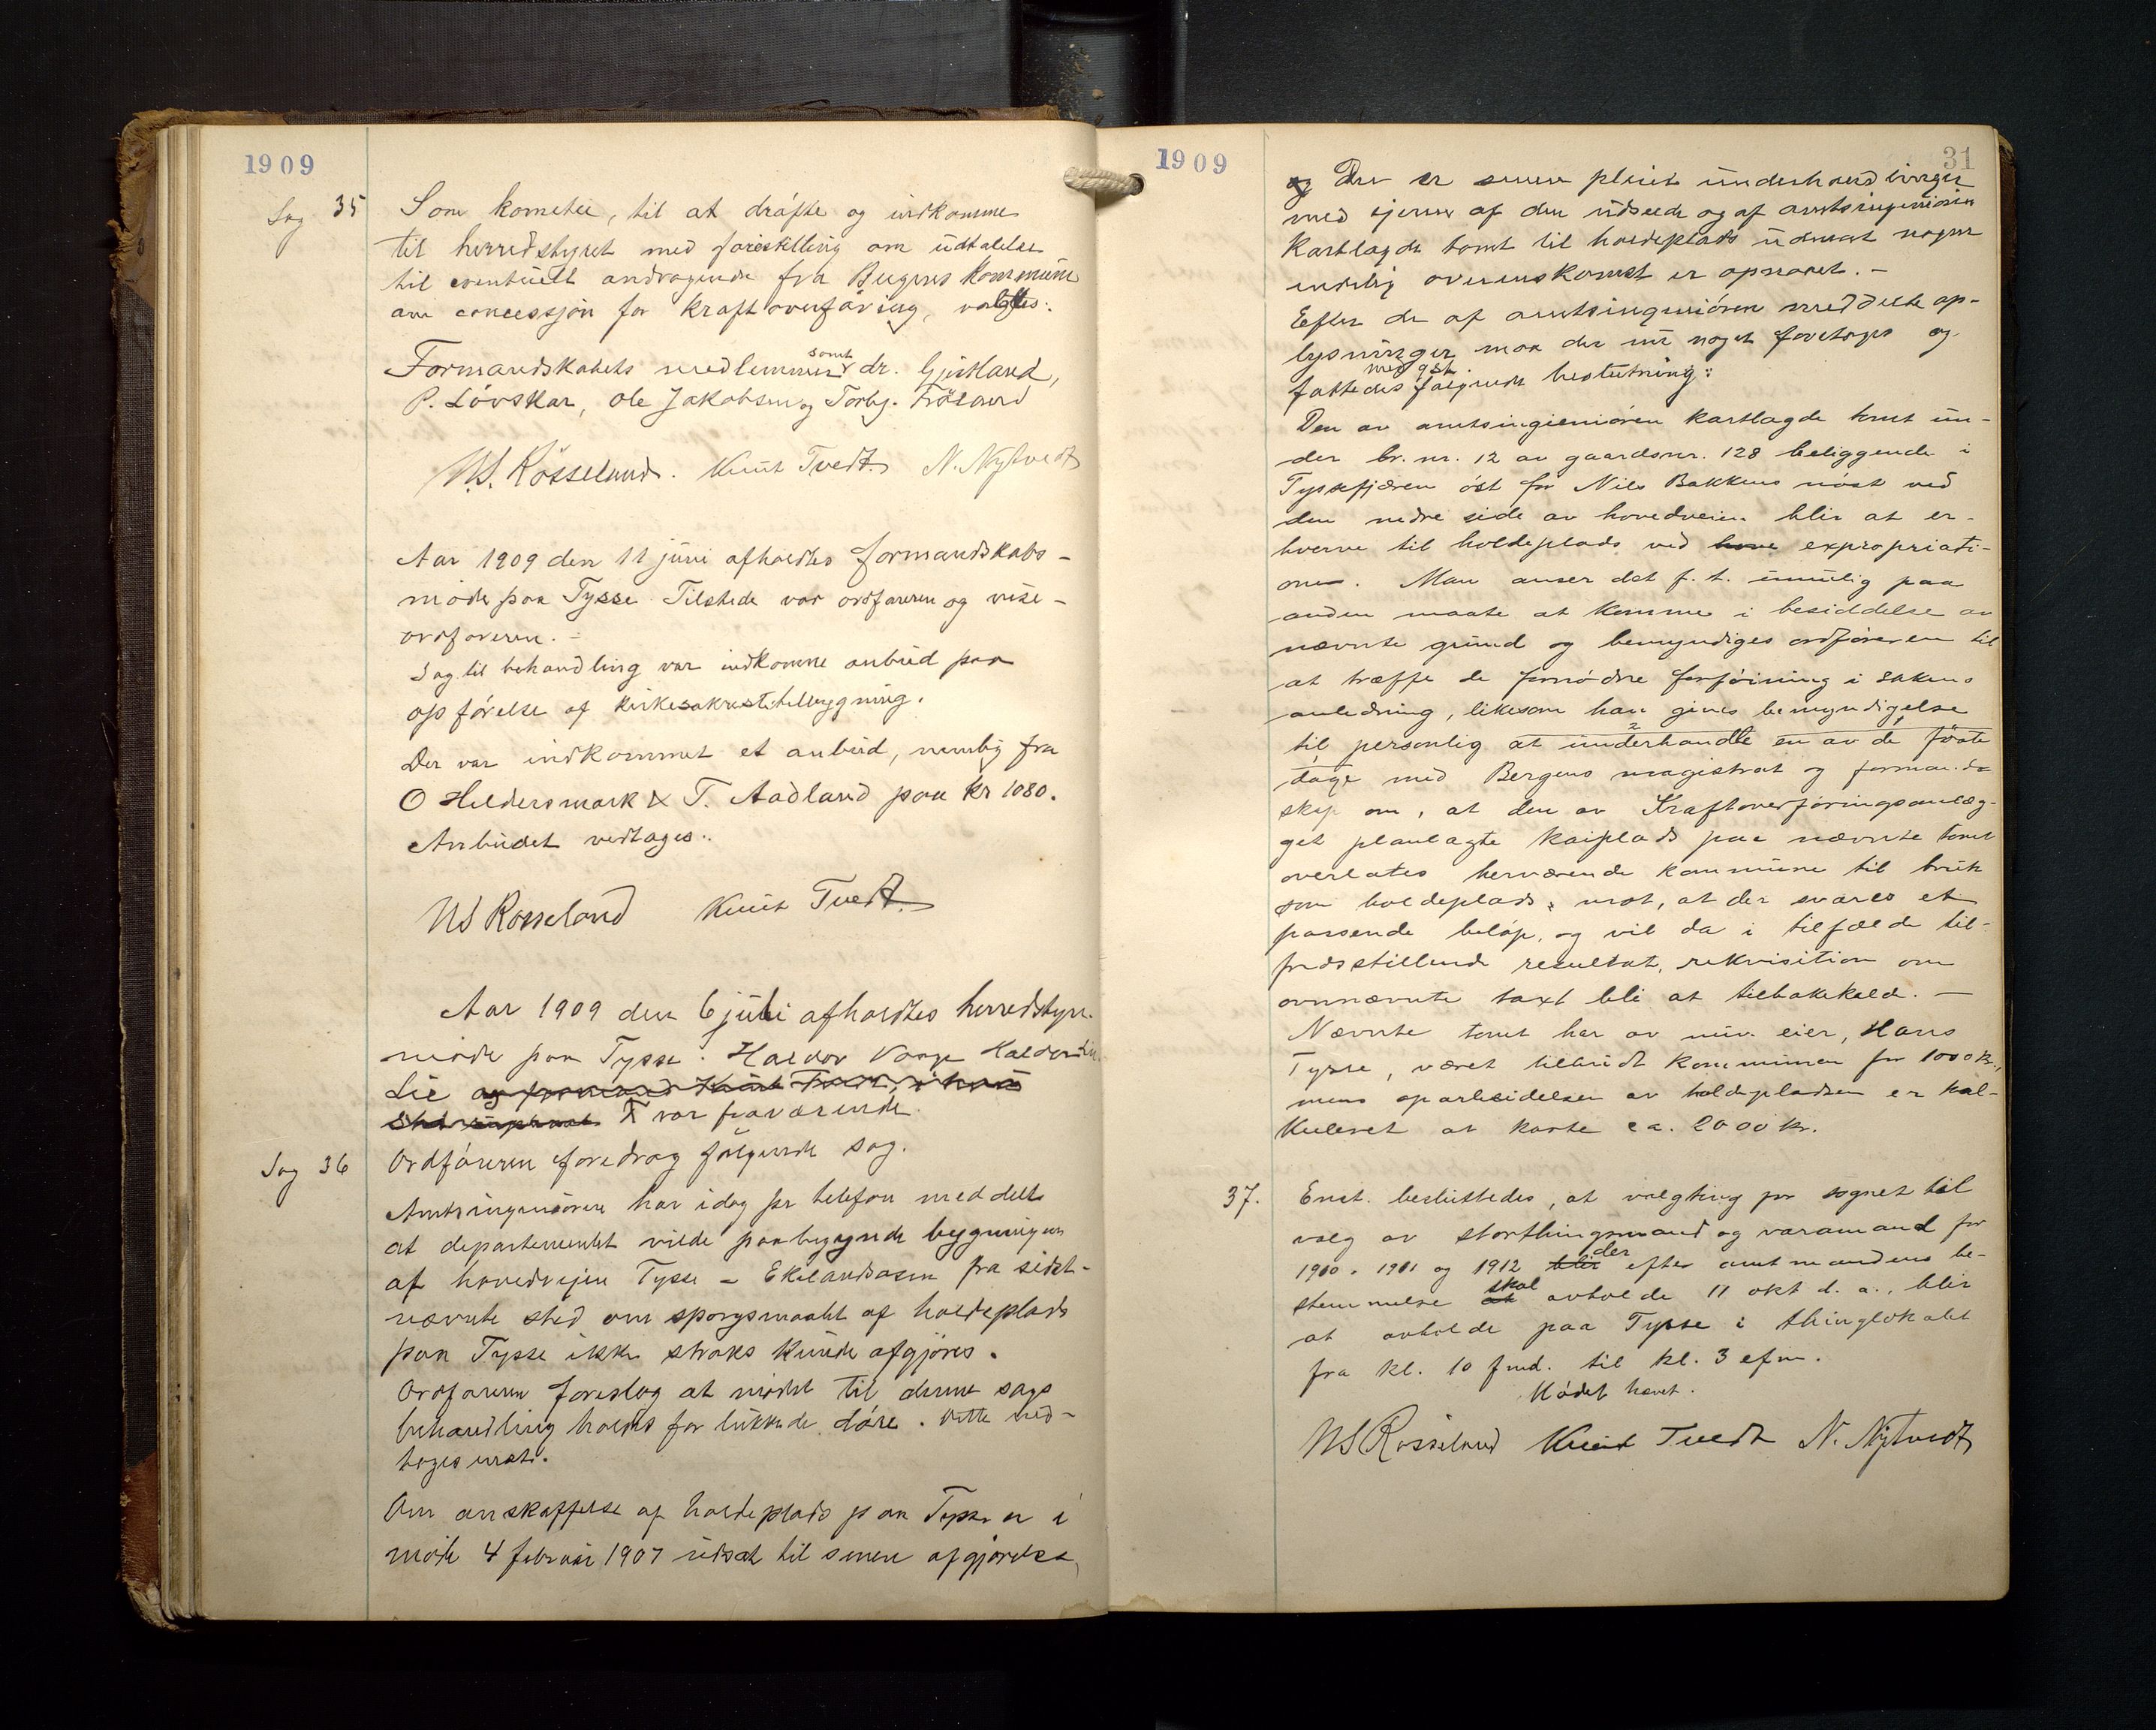 1909
Sag 35
Som kometee, til at dráfte og indkomme
til herredstyret med forestilling om udtalelse
til eventuelt andragende fra Bergens kommune
om concessjon for kraftoverføring, valgtes:
Formandskabets medlemmer samt dr. Gjertland,
P. Lóvskar, Ole Jakobsen og Torbj. Frøland
N.S. Rösseland. Knut Tvedt. N. Nytvedt
Aar 1909 den 11 juni afholdtes formandskabs-
møde paa Tysse. Tilstede var ordføreren og vise-
ordføreren. -
Sag til behandling var indkomne anbud paa
opførelse af kirkesakristitilbygning.
Der var indkommet et anbud, nemlig fra
O Heldersmark & T. Aadland paa kr 1080.
Anbudet vedtages.
NS Rosseland Knut Tvedt.
Aar 1909 den 6 juli afholdtes herredstyre-
møde paa Tysse. Haldor Vaage Haldor
Lie var fraværende.
Sag 36
Ordføreren foredrog følgende sag.
Amtsingeniøren har idag pr telefon meddelt
at departementet vilde paabegynde bygningen
af hovedvejen Tysse - Eikelandsosen fra sidst-
nævnte sted om sporgsmaalet af holdeplads
paa Tysse ikke straks kunde afgjøres.
Ordføreren foreslog at mødet til denne sags
behandling holdes for lukkede døre. Dette ved-
toges enst.
Om anskaffelse af holdeplads paa Tysse er i
møde 4 februar 1907 udsat til senere afgjørelse,
1909
31
og Der er senere pleiet underhandlinger
med ejeren af den udseede og af amtsingeniøren
Kartlagde tomt til holdeplads uden at nogen
endelig overenskomst er opnaaet. -
Efter de af amtsingeniøren meddelte op-
lysninger maa der nu noget foretages og
fattedes følgende beslutning:
Den av amtsingieniøren kartlagde tomt un-
der br. nr. 12 av gaardsnr. 128 beliggende i
Tyssefjæren óst for Nils Bakkens nóst ved
den nedre side av hovedveien blir at er-
hverve til holdeplads ved expropriati-
on. Man anser det f. t. umulig paa
anden maate at komme i besiddelse av
nævnte grund og bemyndiges ordføreren til
at træffe de fornødne forføining i sakens
anledning, likesom han gives bemyndigelse
til personlig at underhandle en av de første
dage med Bergens magistrat og formands
skap om, at den av Kraftoverføringsanlæg-
get planlagte kaiplads paa nævnte tomt
overlates herværende kommune til bruk
som holdeplads, mot, at der svares et
passende beløp, og vil da i tilfælde til-
fredsstillende resultat, rekvisition om
ovnnævnte taxt bli at tilbakekalde. —
Nævnte tomt har av nuv. eier, Hans
Tysse, været tilbudt kommunen for 1000 kr.,
mens oparbeidelsen av holdepladsen er kal-
kuleret at koste ca. 2000 kr.
37.
Enst. besluttedes, at valgting for sognet til
valg av storthingsmand og varamand for
1910, 1911 og 1912 der efter amtmandens be-
stemmelse skal avholde 11 okt d. a., blir
at avholde paa Tysse i thinglokalet
fra kl. 10 fmd. til kl. 3 efm.
Mødet hævet.
NS Rosseland Knut Tvedt N. Nytvedt